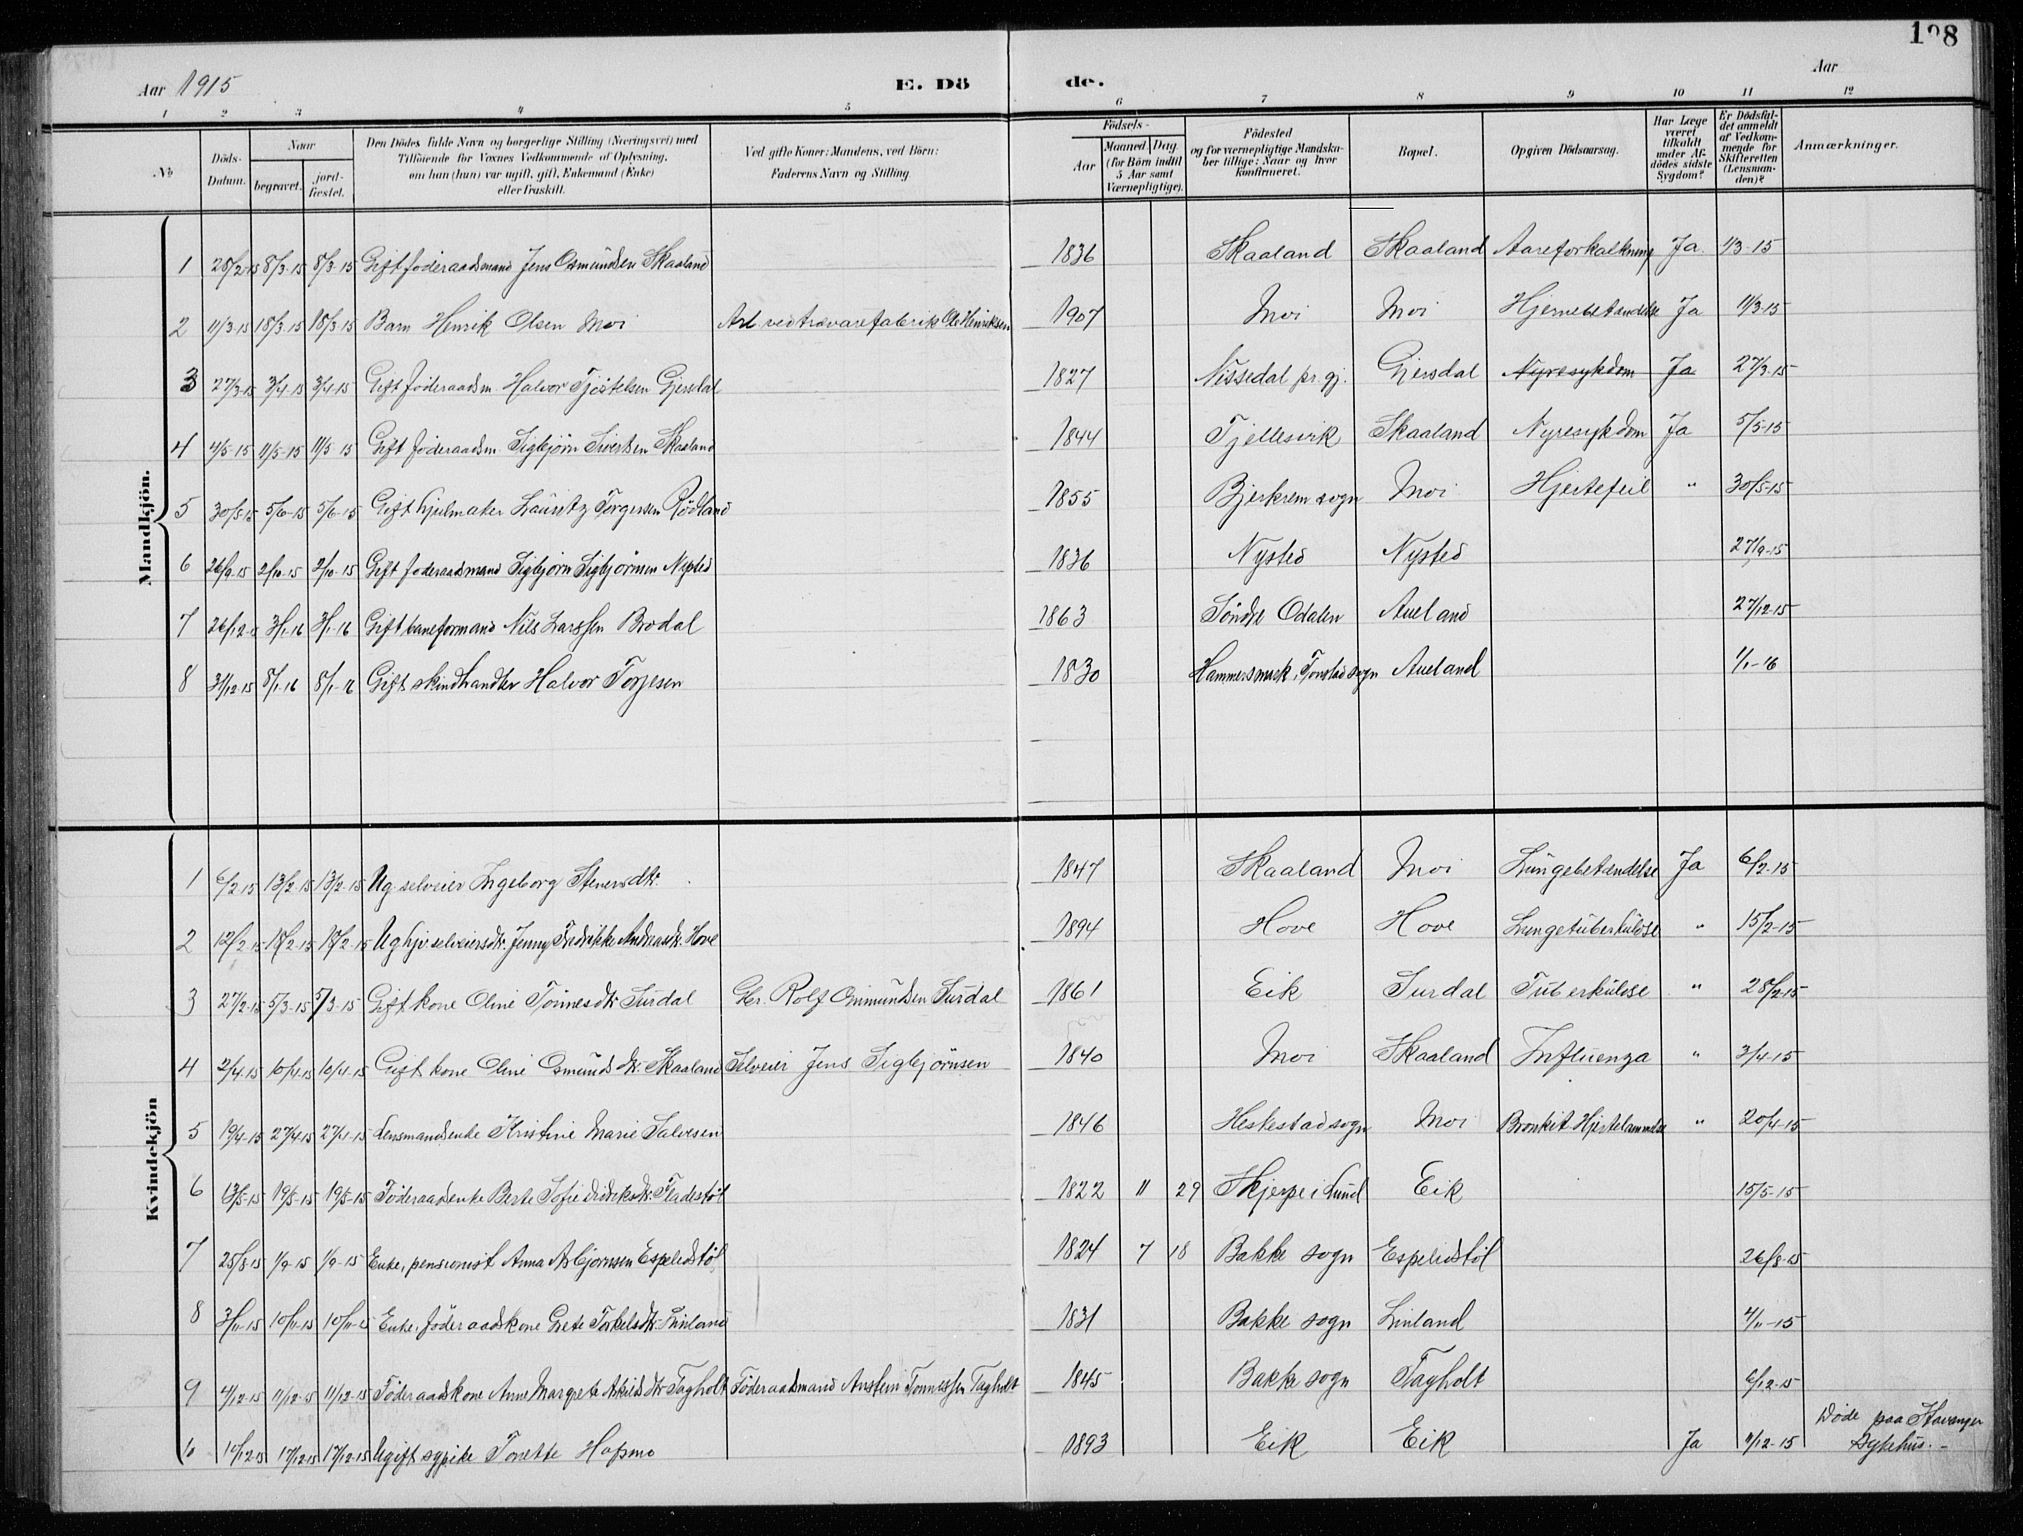 198
Aar 1915
E. Dö de.
Aar
1 2 3 4 5 6 7 8 9 10 11 12
№
Döds-Datum.
Naar
begravet.
jord-fæstet.
Den Dödes fulde Navn og borgerlige Stilling (Næringsvei) med
Tilföiende for Voxnes Vedkommende af Oplysning,
om han (hun) var ugift, gift, Enkemand (Enke)
eller fraskilt.
Ved gifte Koner: Mandens, ved Börn:
Faderens Navn og Stilling.
Födsels-
Aar
Maaned Dag
(for Börn indtil
5 Aar samt
Værnepligtige).
Födested
og for værnepligtige Mandska-
ber tillige: Naar og hvor
konfirmeret.
Bopæl.
Opgiven Dödsaarsag.
Har Læge
været
tilkaldt
under Af-
dödes sidste
Sygdom?
Er Dödsfal-
det anmeldt
af Vedkom-
mende for
Skifteretten
(Lensman-
den)?
Anmærkninger.
Mandkjön.
1 28/2-15 8/3-15 8/3-15 Gift föderaadsmand Jens Osmundsen Skaaland 1836 Skaaland Skaaland Aareforkalkning Ja 1/3-15
2 11/3-15 18/3-15 18/3-15 Barn Henrik Olsen Moi Arb. ved trævarefabrik Ole Henriksen 1907 Moi Moi Hjernebetændelse Ja 11/3-15
3 27/3-15 3/4-15 3/4-15 Gift föderaadsm. Halvor Tjöstelsen Gjersdal 1827 Nissedal pr.gj. Gjersdal Nyresykdom Ja 27/3-15
4 4/5-15 11/5-15 11/5-15 Gift föderaadsm. Sigbjörn Sivertsen Skaaland 1844 Fjellesvik Skaaland Nyresykdom Ja 5/5-15
5 30/5-15 5/6-15 5/6-15 Gift hjulmaker Lauritz Torgersen Rödland 1855 Bjerkrem sogn Moi Hjertefeil " 30/5-15
6 26/9-15 2/10-15 2/10-15 Gift föderaadsmand Sigbjörn Sigbjörnsen Nysted 1836 Nysted Nysted 27/9-15
7 26/12-15 3/1-16 3/1-16 Gift baneformand Nils Larssen Brodal 1863 Söndre Odalen Aueland 27/12-15
8 31/12-15 8/1-16 8/1-16 Gift skindhandler Halvor Torjesen 1830 Hammersmark, Tonstad sogn Aueland 1/1-16
Kvindekjön
1 6/2-15 13/2-15 13/2-15 Ug. selveier Ingeborg Stenersdtr. 1847 Skaaland Moi Lungebetændelse Ja 6/2-15
2 12/2-15 18/2-15 18/2-15 Ug hjv. selveiersdtr. Jenny Fredrikke Andreasdtr. Hove 1894 Hove Hove Lungetuberkulose " 15/2-15
3 27/2-15 5/3-15 5/3-15 Gift kone Oline Tönnesdtr. Surdal Gbr. Rolf Omundsen Surdal 1861 Eik Surdal Tuberkulose " 28/2-15
4 2/4-15 10/4-15 10/4-15 Gift kone Oline Osmundsdtr. Skaaland Selveier Jens Sigbjörnsen 1840 Moi Skaaland Influenza " 3/4-15
5 19/4-15 27/4-15 27/4-15 Lensmandsenke Kristine Marie Salvesen 1846 Heskestad sogn Moi Bronkit Hjertelammelse " 20/4-15
6 13/5-15 19/5-15 19/5-15 Föderaadenke Berte Sofie Didriksdtr. Fladestöl 1822 11 29 Skjerpe i Lund Eik 15/5-15
7 25/8-15 1/9-15 1/9-15 Enke, pensionist Anna Asbjørnsen Espelidstöl 1824 7 18 Bakke sogn Espelidstöl 26/8-15
8 3/11-15 10/11-15 10/11-15 Enke, föderaadskone Grete Torkelsdtr. Linland 1831 Bakke sogn Linland 4/11-15
9 4/12-15 11/12-15 11/12-15 Föderaadskone Anne Margrete Askildsdtr. Tagholt Föderaadsmand Anstein Tonnessen Tagholt 1845 Bakke sogn Tagholt 6/12-15
10 10/12-15 17/12-15 17/12-15 Ugift sypike Tonette Hopsmo 1893 Eik Eik Ja 11/12-15 Døde paa Stavanger
Sykehus.-